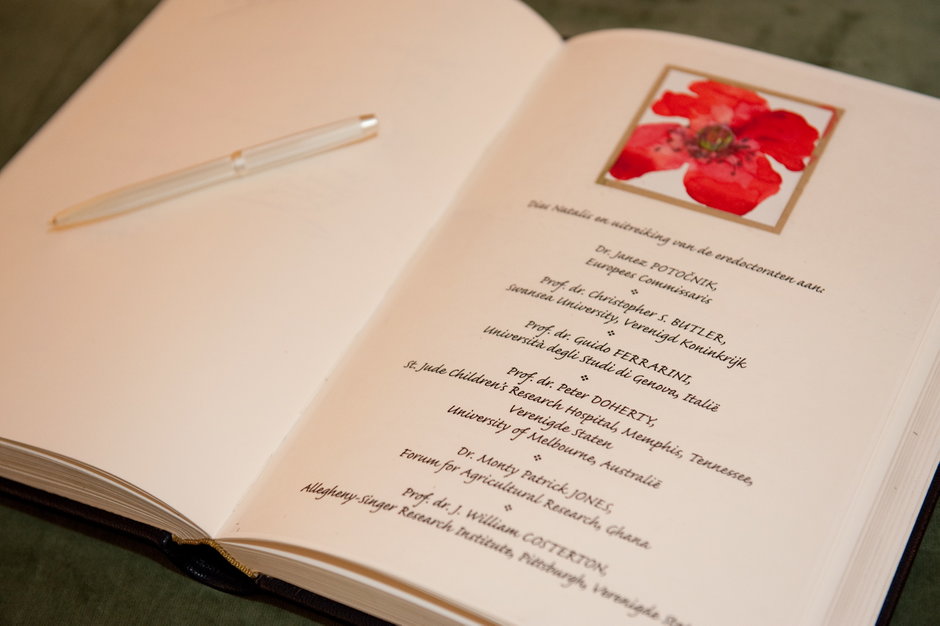 Dies Natalis en uitreiking van de eredoctoraten aan:
Dr. Janez POTOČNIK,
Europees Commissaris
Prof. dr. Christopher S. BUTLER,
Swansea University, Verenigd Koninkrijk
Prof. dr. Guido FERRARINI,
Università degli Studi di Genova, Italië
Prof. dr. Peter DOHERTY,
St. Jude Children's Research Hospital, Memphis, Tennessee,
Verenigde Staten
University of Melbourne, Australië
Dr. Monty Patrick JONES,
Forum for Agricultural Research, Ghana
Prof. dr. J. William COSTERTON,
Allegheny-Singer Research Institute, Pittsburgh, Verenigde